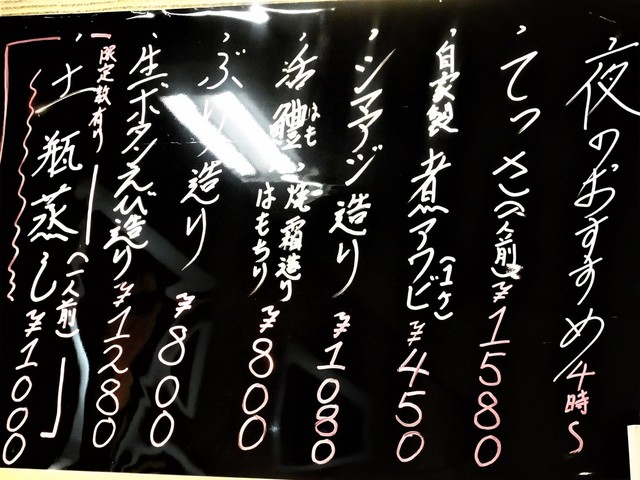 夜のおすすめ4時〜
、てっさ(一人前)¥1580
自家製煮アワビ(1ケ)¥450
、シマアジ造り¥1080
、活鱧はも、焼霜造りはもちり¥800
、ぶり造り¥800
、生ボタンえび造り¥1280
限定数有り
、土瓶蒸し(一人前)¥1000